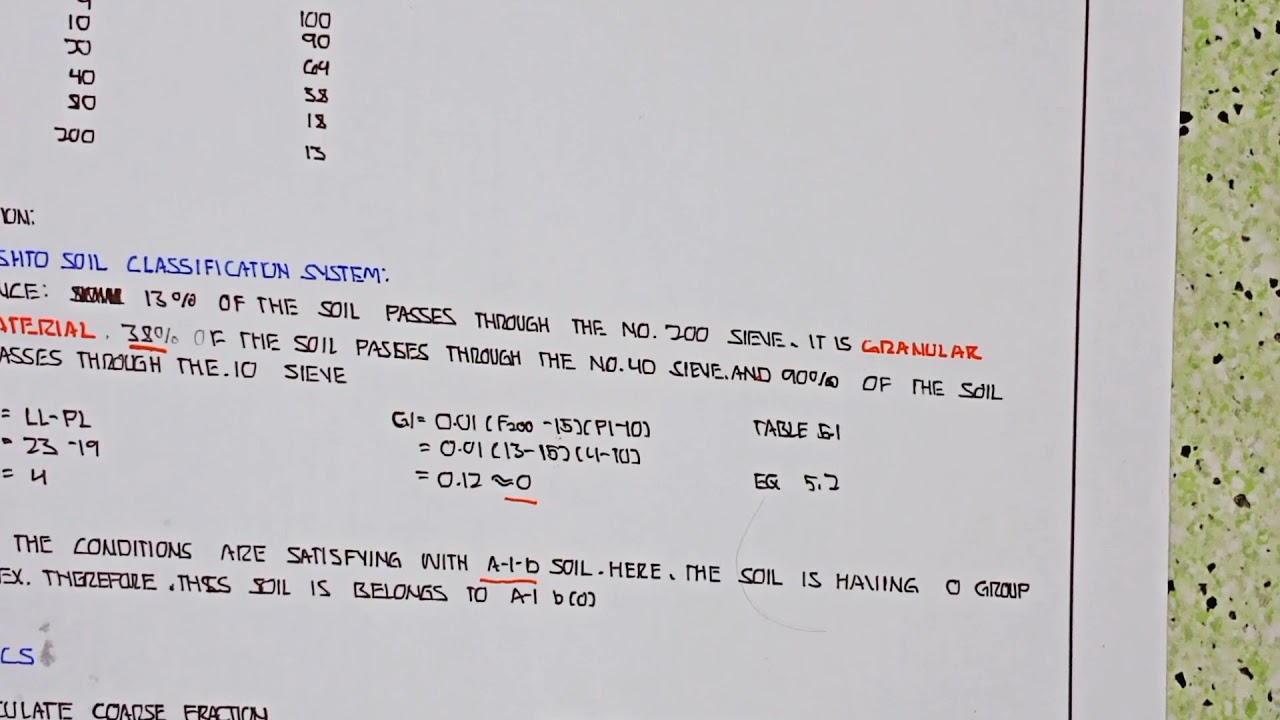 10 100
20 90
40 64
80 38
200 18
13
ION:
SHTO SOIL CLASSIFICATON SYSTEM:
NCE: 13% OF THE SOIL PASSES THROUGH THE NO. 200 SIEVE. IT IS GRANULAR
ATERIAL. 38% OF THE SOIL PASSES THROUGH THE NO.40 SIEVE.AND 90% OF THE SOIL
ASSES THROUGH THE.10 SIEVE
= LL-PL GI= 0.01 (F200 -15)(PI-10) TABLE 5.1
= 23 -19 = 0.01 (13-15)(4-10)
= 4 = 0.12 ≈0 EQ 5.2
THE CONDITIONS ARE SATISFYING WITH A-1-b SOIL.HERE, THE SOIL IS HAVING 0 GROUP
EX. THEREFORE.THIS SOIL IS BELONGS TO A-1 b(0)
CS
CULATE COARSE FRACTION